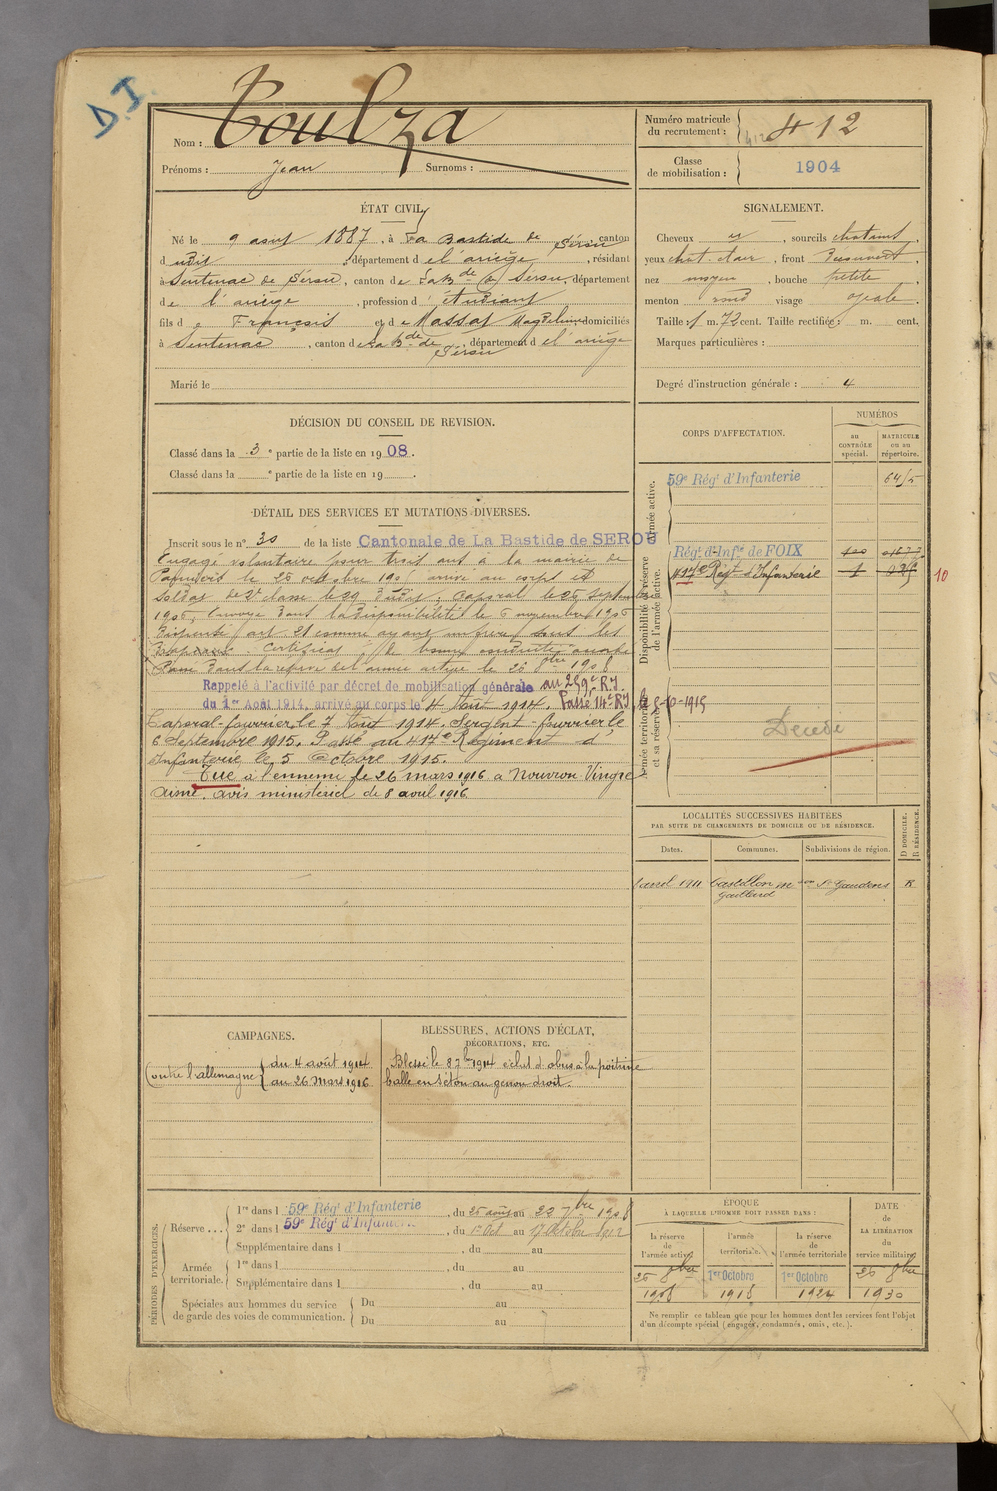 D.I.
Nom : Toulza
Prénoms : Jean Surnoms :
Numéro matricule du recrutement : 412 412
Classe de mobilisation : 1904
ÉTAT CIVIL
Né le 9 août 1887, à La Bastide de Sérou canton
d udit, département d e l'ariège, résidant
à Sentenac de Sérou, canton de La Bde de Sérou, département
de l'ariège, profession d'étudiant
fils de François et de Massat Magdeleine domiciliés
à Sentenac, canton de La Bde de Sérou, département d e l'ariège
Marié le
SIGNALEMENT.
Cheveux et, sourcils chatains,
yeux chat. clair, front découvert,
nez moyen, bouche petite,
menton rond visage ovale.
Taille : 1 m. 72 cent. Taille rectifiée : m. cent.
Marques particulières :
Degré d'instruction générale : 4
DÉCISION DU CONSEIL DE REVISION.
Classé dans la 3e partie de la liste en 1908.
Classé dans la e partie de la liste en 19 .
CORPS D'AFFECTATION.
NUMÉROS
au CONTRÔLE spécial.
MATRICULE ou au répertoire.
Armée active.
59e Régt d'Infanterie
Disponibilité et réserve de l'armée active.
Régt d'Infie de FOIX
417e Régt d'Infanterie 1
10
Armée territoriale et sa réserve.
Décédé
DÉTAIL DES SERVICES ET MUTATIONS DIVERSES.
Inscrit sous le n° 30 de la liste Cantonale de La Bastide de SEROU
Engagé volontaire pour trois ans à la mairie de
Pamiers le 25 octobre 1905 arrivé au corps et
soldat de 2e classe le 29 dudit, Caporal le 25 septembre
1906, Envoyé dans la disponibilité le novembre 1906
Dispensé art. 21 comme ayant un frère sous les
drapeaux. Certificat de bonne conduite accordé
Passé dans la réserve de l'armée active le 25 8bre 1908
Rappelé à l'activité par décret de mobilisation générale au 259e R.I.
du 1er Août 1914, arrivé au corps le 4 Août 1914. Passé 14e R.I. le 5-10-1915
Caporal-fourrier le 7 Août 1914. Sergent-fourrier le
6 Septembre 1915. Passé au 417e Régiment d'
Infanterie le 5 Octobre 1915.
Tué à l'ennemi le 26 mars 1916 à Nouvron Vingré
Aisne. avis ministériel du 8 avril 1916
LOCALITÉS SUCCESSIVES HABITÉES
PAR SUITE DE CHANGEMENTS DE DOMICILE OU DE RÉSIDENCE.
Dates. Communes. Subdivisions de région. D DOMICILE. R RÉSIDENCE.
avril 1911 Castillon Gaillard St Gaudens R
CAMPAGNES.
Contre l'allemagne du 4 août 1914
au 26 mars 1916
BLESSURES, ACTIONS D'ÉCLAT,
DÉCORATIONS, ETC.
Blessé le 8 7bre 1914 éclat d'obus à la poitrine
balle en séton au genou droit.
PÉRIODES D'EXERCICES.
Réserve ...
1re dans l 59e Régt d'Infanterie, du 25 août au 22 7bre 1908
2e dans l 59e Régt d'Infanterie, du 1er Oct au 17 Octobre 1912
Supplémentaire dans l , du au
Armée territoriale.
1re dans l , du au
Supplémentaire dans l , du au
Spéciales aux hommes du service
de garde des voies de communication.
Du au
Du au
ÉPOQUE
À LAQUELLE L'HOMME DOIT PASSER DANS :
la réserve de l'armée active
l'armée territoriale.
la réserve de l'armée territoriale
DATE de LA LIBÉRATION du service militaire
25 8bre 1908
1er Octobre 1918
1er Octobre 1924
25 8bre 1930
Ne remplir ce tableau que pour les hommes dont les services font l'objet
d'un décompte spécial (engagés, condamnés, omis, etc.).